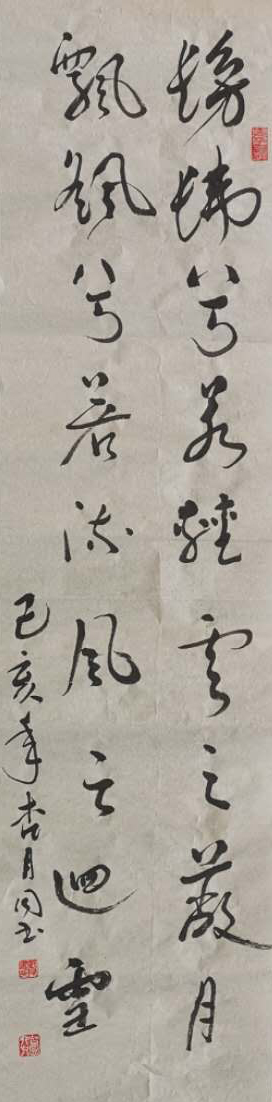 髣髴兮若輕雲之蔽月
飄飖兮若流風之迴雪
己亥年杏月